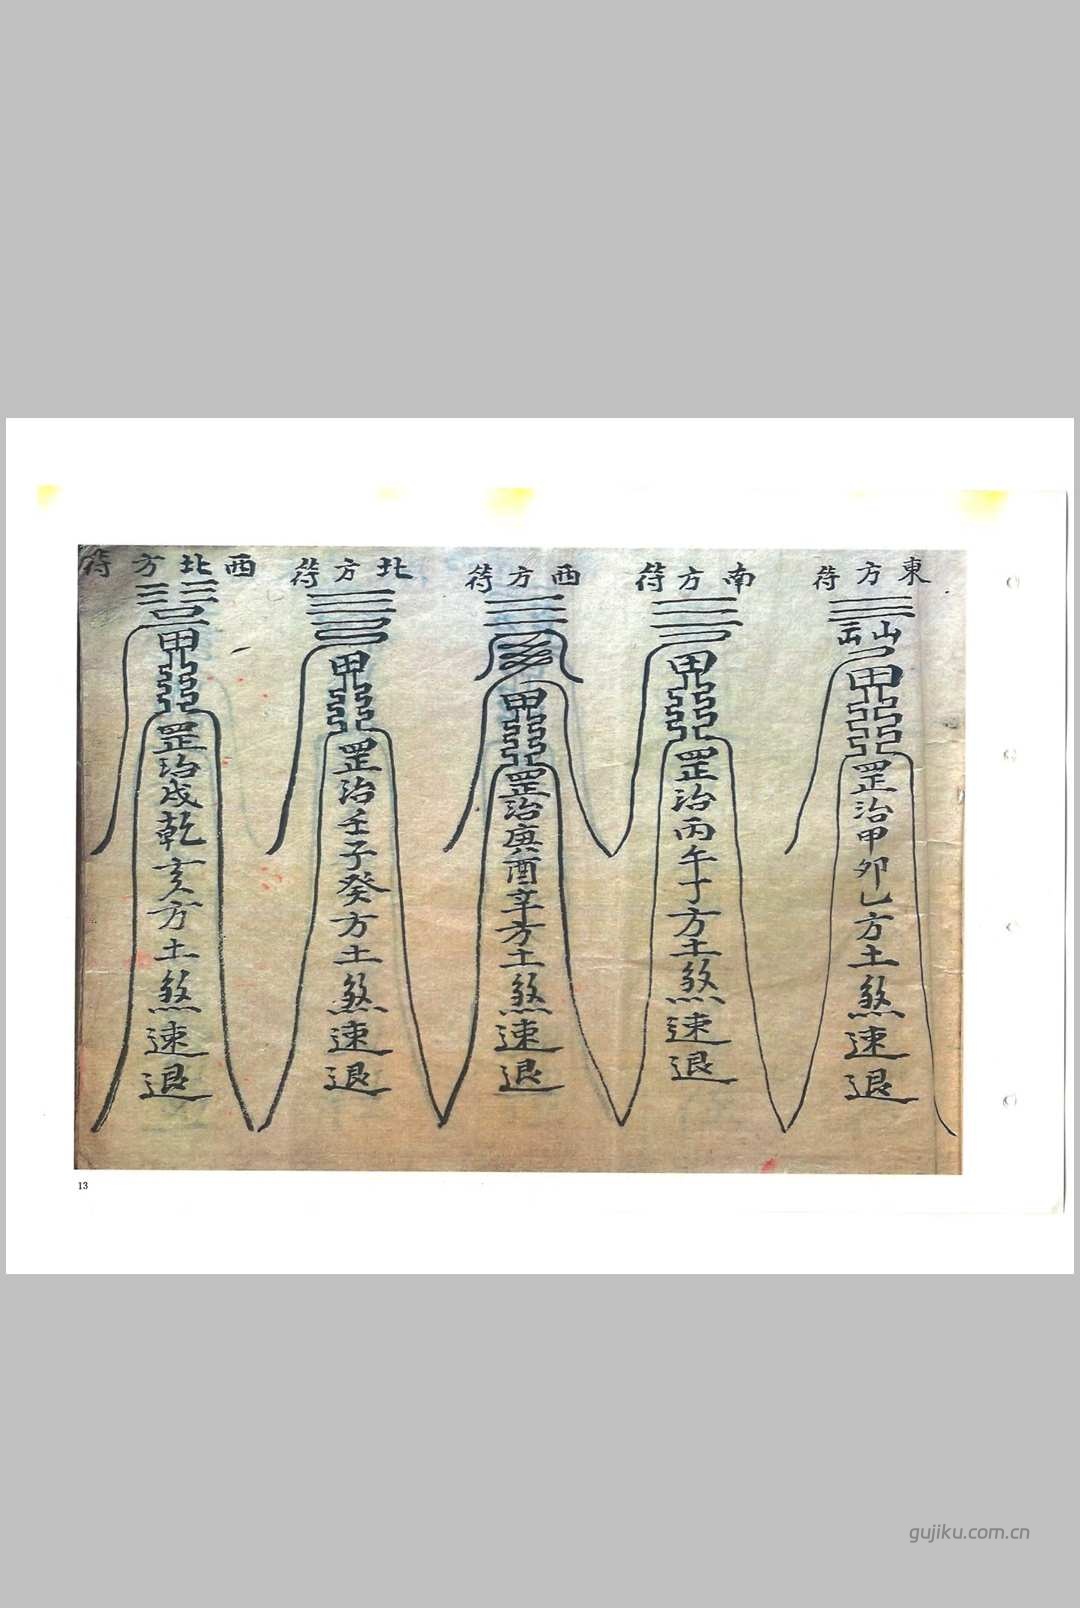 東方符
山云
甲
罡治甲卯乙方土煞速退
南方符
甲
罡治丙午丁方土煞速退
西方符
甲
罡治庚酉辛方土煞速退
北方符
甲
罡治壬子癸方土煞速退
西北方符
甲
罡治戌乾亥方土煞速退
13
gujiku.com.cn